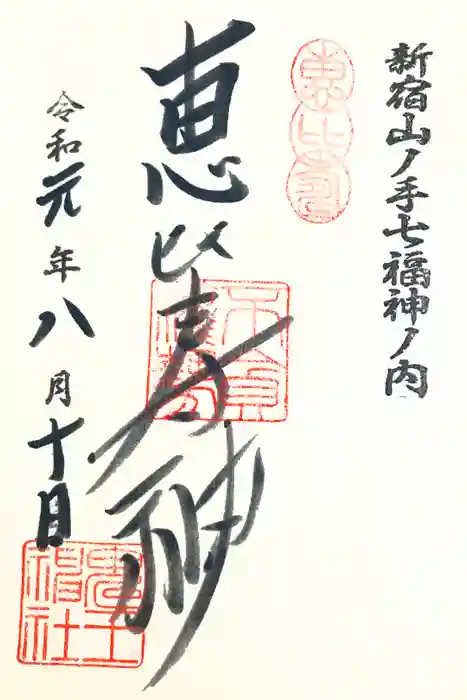 新宿山ノ手七福神ノ内
恵比寿
恵比寿神
令和元年八月十日